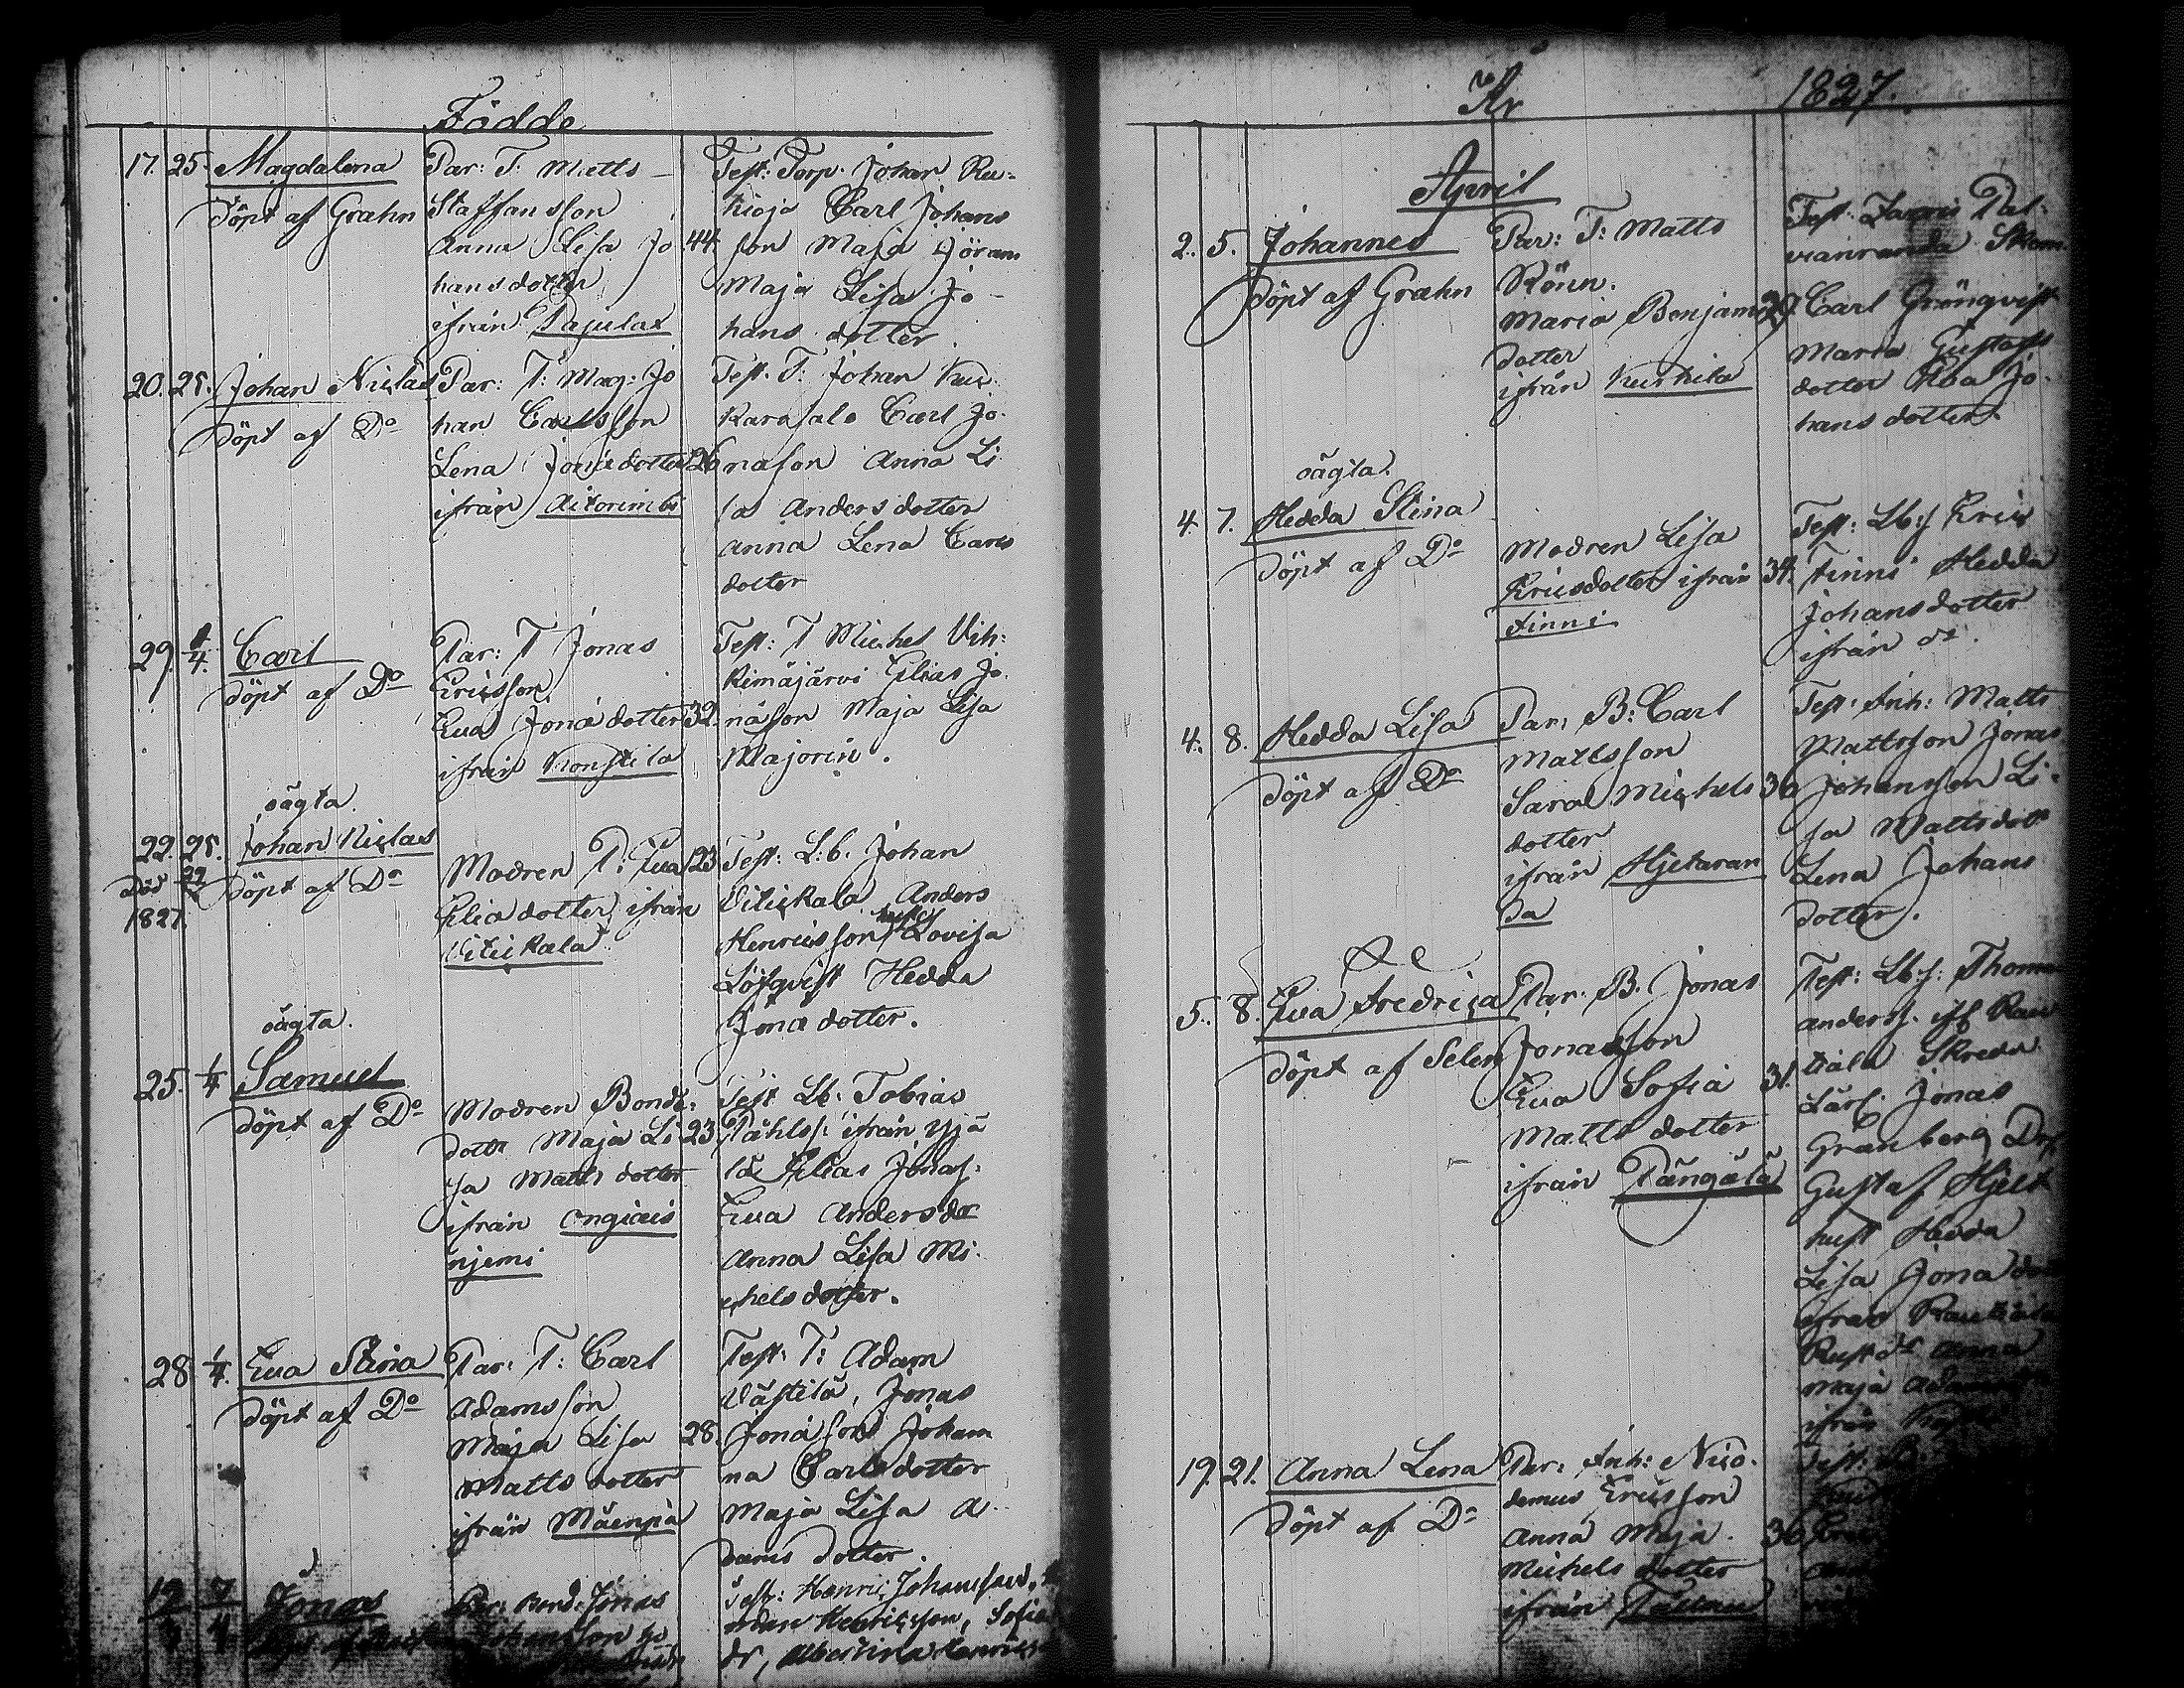 Födde
17. 25. Magdalena
Döpt af Grahn
Par: T: Matts
Staffansson
Anna Lisa Jo 44.
hansdotter
ifrån Pajulax
Test: Torp. Johan
Carl Johans
son Maja Göram
Maja Lisa Jo
hans dotter.
20. 25. Johan Niclas
Döpt af Do
Par: T: Mag: Jo
han Carlsson
Lena Jonædotter 26
ifrån
Test. T. Johan
Karasalo Carl Jo
nason Anna Li
sa Andersdotter
Anna Lena Carls
dotter
29. 1/4. Carl
Döpt af Do
Par: T Jonas
Ericsson
Eva Jonædotter 32.
ifrån Konstila
Test: T Michel Vih:
kimäjärvi Elias Jo
næson Maja Lisa
Majorin.
oägta.
22. 25. Johan Niclas
Död 22
1827.
Döpt af Do
Modren T: Eva 23
Eliædotter ifrån
Vitickala
Test: L:b. Johan
Vitickala Anders
Henricsson hust Lovisa
Löfqvist Hedda
Jonædotter.
oägta.
25. 1/4 Samuel
Döpt af Do
Modren Bonde:
dottr Maja Li 23
sa Matts dotter
ifrån Ongiais
njemi
Test Lb: Tobias
Påhlss: ifrån Yjä
lä Elias Jonas:
Eva Andersdor
Anna Lisa Mi
chels dotter.
28 1/4. Eva Stina
Döpt af Do
Par: T: Carl
Adamsson
Maja Lisa 28.
Matts dotter
ifrån Mäenpä
Test: T: Adam
Västilä, Jonas
Jonæson Johan
na Carlsdotter
Maja Lisa A
dams dotter.
12 7
4
Jonas
Par: Bond: Jonas
Johansson
Test: Henric Johansson,
Henricsson, Sofia
dr, Albertina
År 1827.
April
2. 5. Johannes
Döpt af Grahn
Par: T: Matts
Rönn.
Maria Benjams 29
dotter
ifrån Kurkila
Test:
Carl Grönqvist
Maria Gustafs
dotter Jo
hans dotter.
oägta.
4. 7. Hedda Stina
Döpt af Do
Modren Lisa
Ericsdotter ifrån 34.
Finni
Test: Lb:s Eric
Finni Hedda
Johansdotter
ifrån do.
4. 8. Hedda Lisa
Döpt af Do
Par: B: Carl
Mattsson
Sara Michels 36
dotter
ifrån Hjetaran
da
Test: Inh: Matts
Mattsson Jonas
Johansson Li
sa Mattsdotr
Lena Johans
dotter.
5. 8. Eva Fredrica
Döpt af Selen
Par: B. Jonas
Jonasson
Eva Sofia 31.
Matts dotter
ifrån Tängälä
Test: Lb:s: Thoma
Anderss.
Skredd
Lärl. Jonas
Granberg
Gustaf Hjelt
hust Hedda
Lisa Jonæ
ifrån
Anna
Maja
ifrån
19. 21. Anna Lena
Döpt af Do
Par: Inh: Nico
demus Ericsson
Anna Maja 36
Michels dotter
ifrån
Test: B: